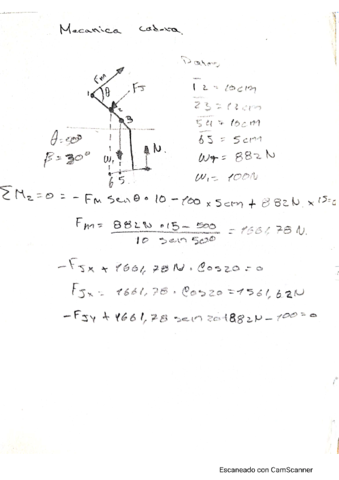 Mecanica cadera.
Datos
12 = 10cm
23 = 18cm
54 = 10cm
65 = 5cm
WT = 882N
W1 = 100N
Fm
1
θ
FJ
2
3
θ=50°
β=30°
W1
N
6 5
ΣM2=0= -FM senθ·10 -100 x 5cm + 882N x 15=0
Fm= 882N·15 - 500 / 10 sen50° = 1661,78N.
-FJx + 1661,78N · Cos20=0
FJx = 1661,78 · Cos20 = 1561,62N
-FJy + 1661,78 sen20+882N - 100=0
Escaneado con CamScanner